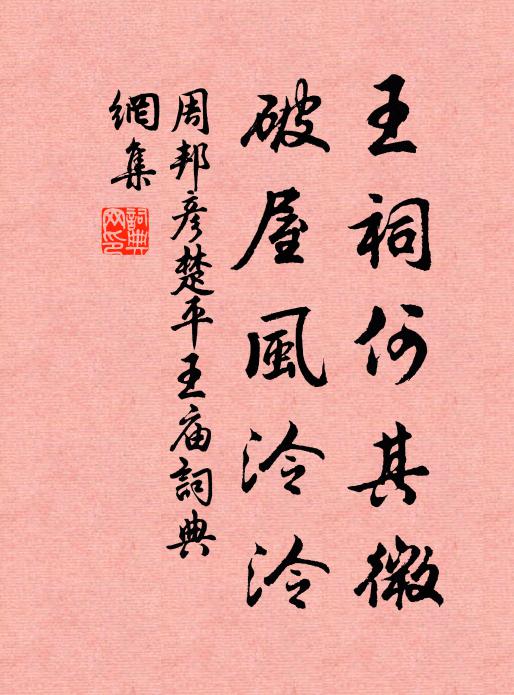 王祠何其微
破屋風泠泠
周邦彥楚平王庙詞典
網集
詞典網印